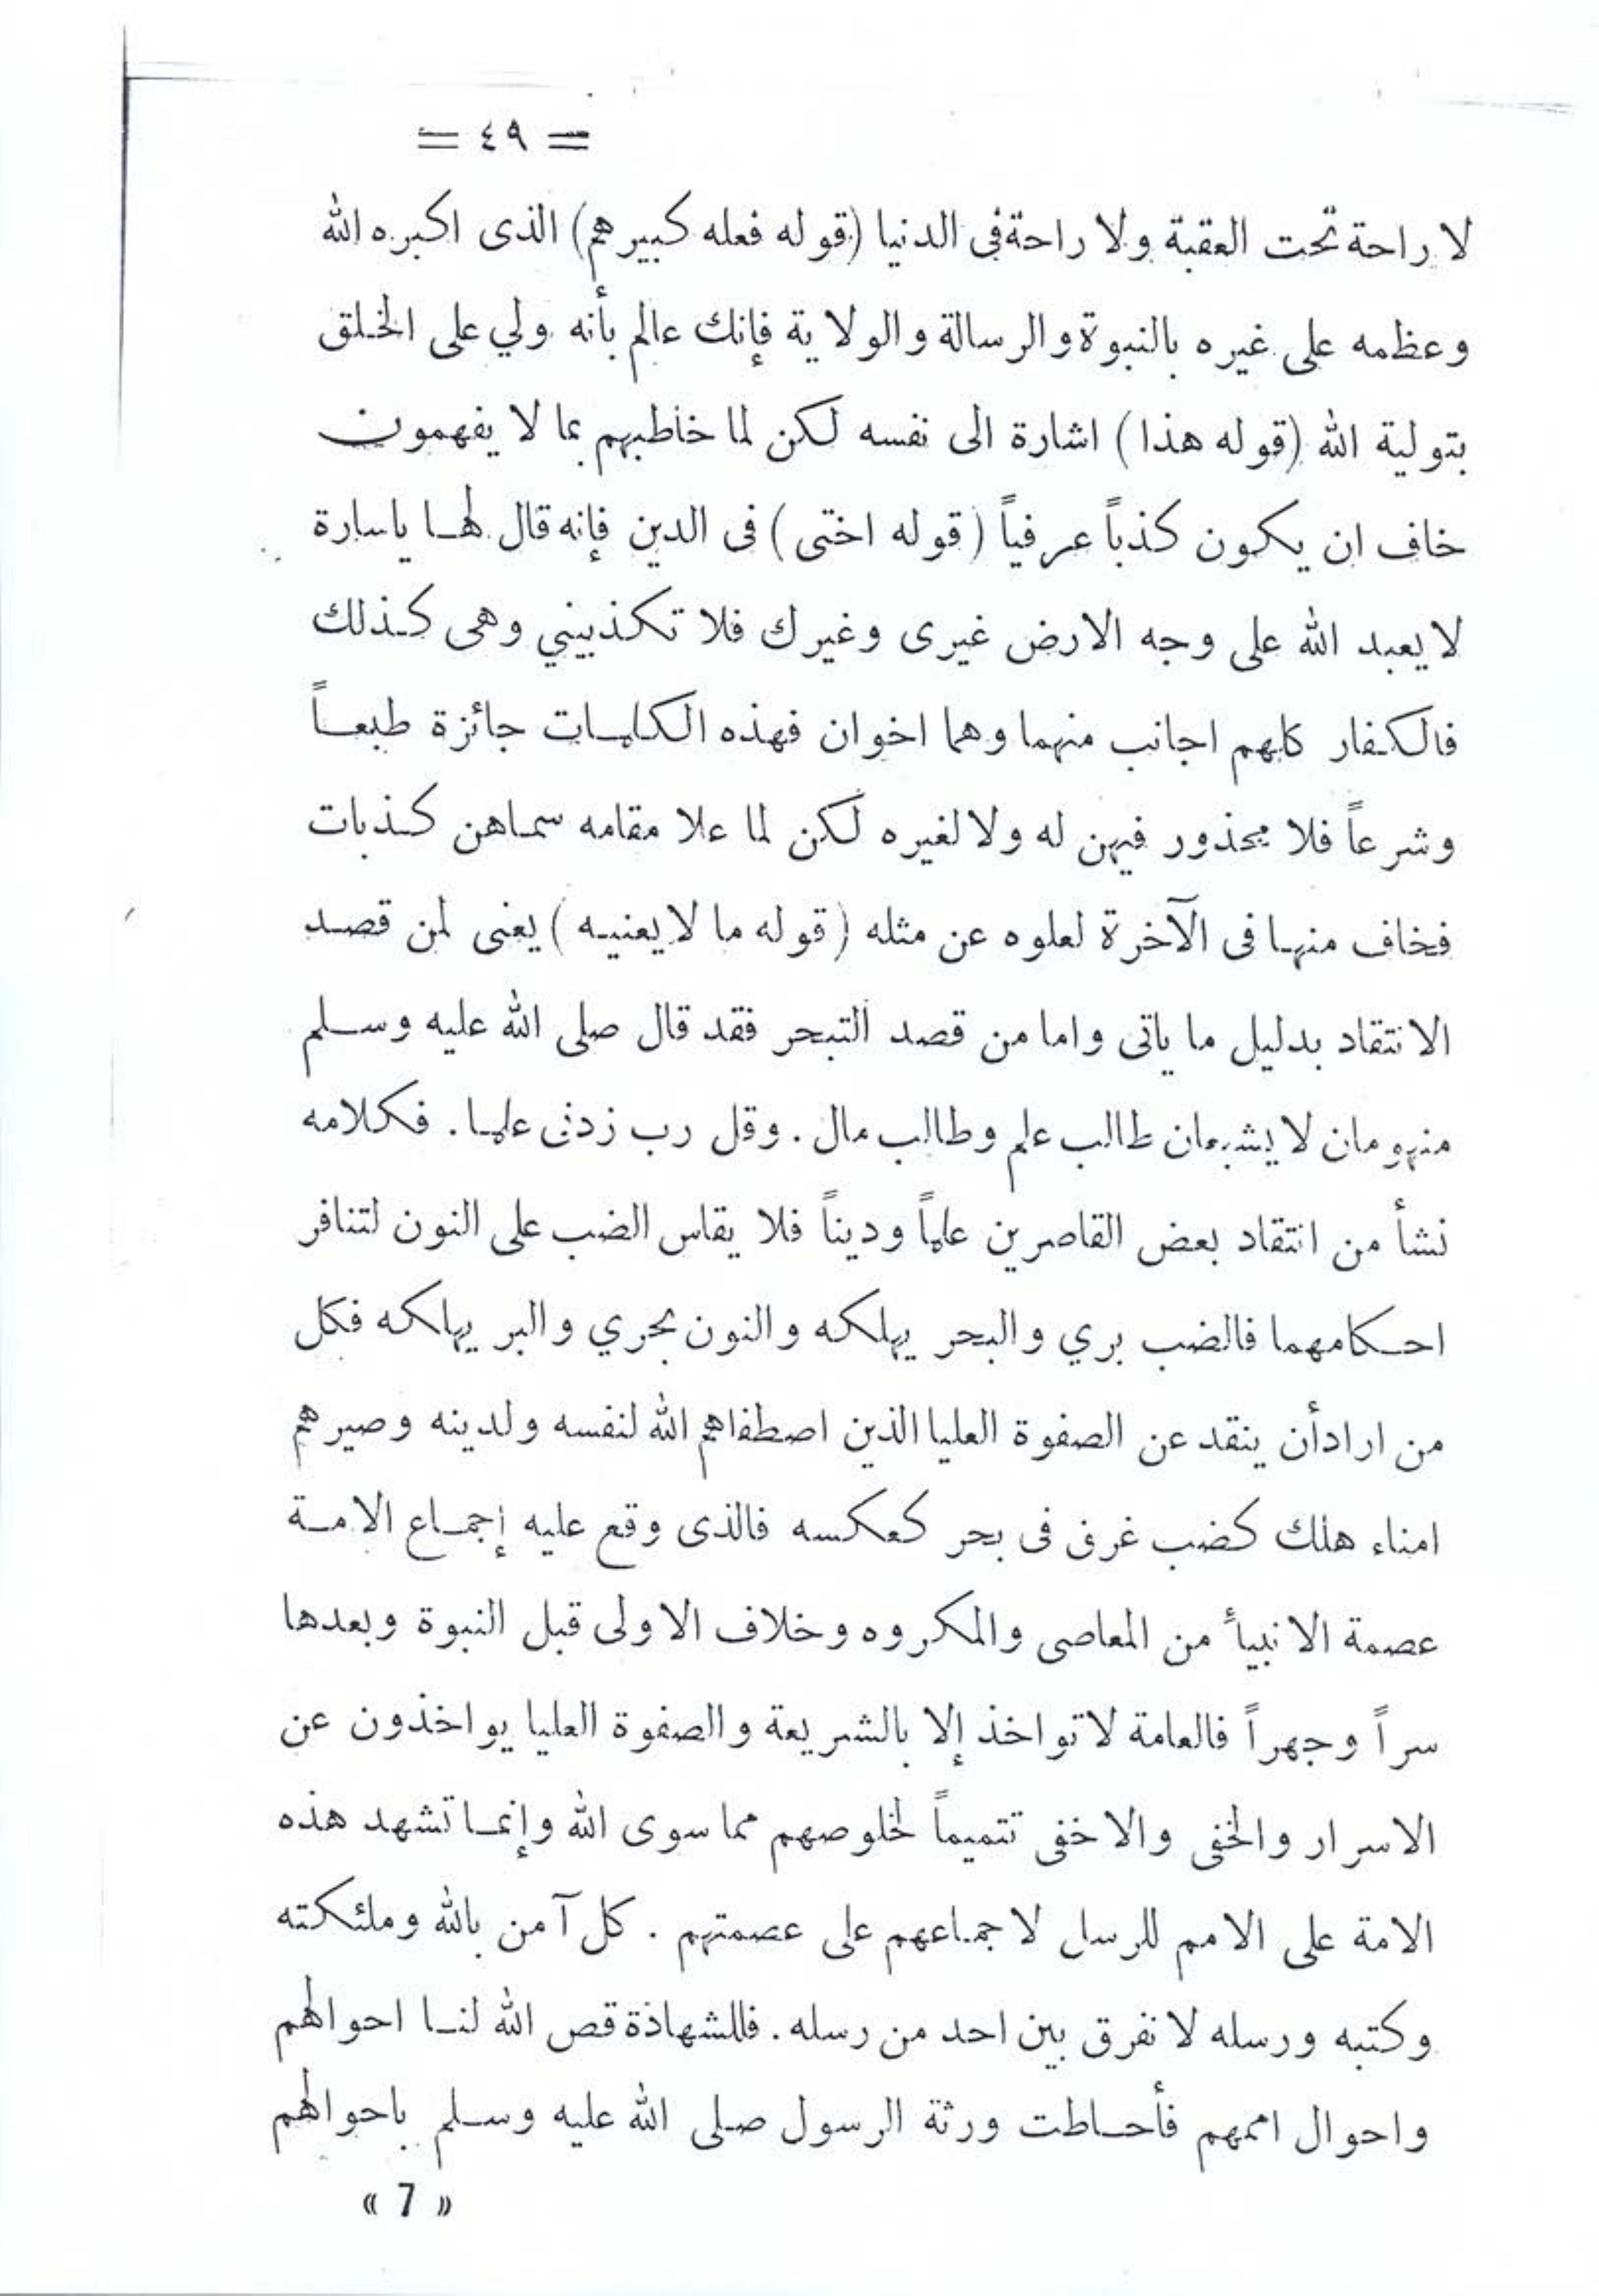 = ٤٩ =
لا راحة تحت العقبة ولا راحة فى الدنيا (قوله فعله كبيرهم) الذى اكبره الله
وعظمه على غيره بالنبوة والرسالة والولاية فإنك عالم بأنه ولي على الخلق
بتولية الله (قوله هذا) اشارة الى نفسه لكن لما خاطبهم بما لا يفهمون
خاف ان يكون كذباً عرفياً (قوله اختى) فى الدين فإنه قال لهـا ياسارة
لا يعبد الله على وجه الارض غيرى وغيرك فلا تكذبيني وهى كذلك
فالكفار كلهم اجانب منهما وهما اخوان فهذه الكلمات جائزة طبعاً
وشرعاً فلا محذور فيهن له ولا لغيره لكن لما علا مقامه سماهن كذبات
فخاف منها فى الآخرة لعلوه عن مثله (قوله ما لا يعنيه) يعنى لمن قصد
الانتقاد بدليل ما ياتى واما من قصد التبحر فقد قال صلى الله عليه وسلم
منهومان لا يشبعان طالب علم وطالب مال. وقل رب زدنى علما. فكلامه
نشأ من انتقاد بعض القاصرين علماً وديناً فلا يقاس الضب على النون لتنافر
احكامهما فالضب بري والبحر يهلكه والنون بحري والبر يهلكه فكل
من ارادأن ينقد عن الصفوة العليا الذين اصطفاهم الله لنفسه ولدينه وصيرهم
امناء هلك كضب غرق فى بحر كعكسه فالذى وقع عليه إجماع الامة
عصمة الانبيأ من المعاصى والمكروه وخلاف الاولى قبل النبوة وبعدها
سراً وجهراً فالعامة لا تواخذ إلا بالشريعة والصفوة العليا يواخذون عن
الاسرار والخفى والاخفى تتميماً لخلوصهم مما سوى الله وإنما تشهد هذه
الامة على الامم للرسل لاجماعهم على عصمتهم. كل آمن بالله وملئكته
وكتبه ورسله لا نفرق بين احد من رسله. فللشهاذة قص الله لنا احوالهم
واحوال اممهم فأحاطت ورثة الرسول صلى الله عليه وسلم باحوالهم
« 7 »